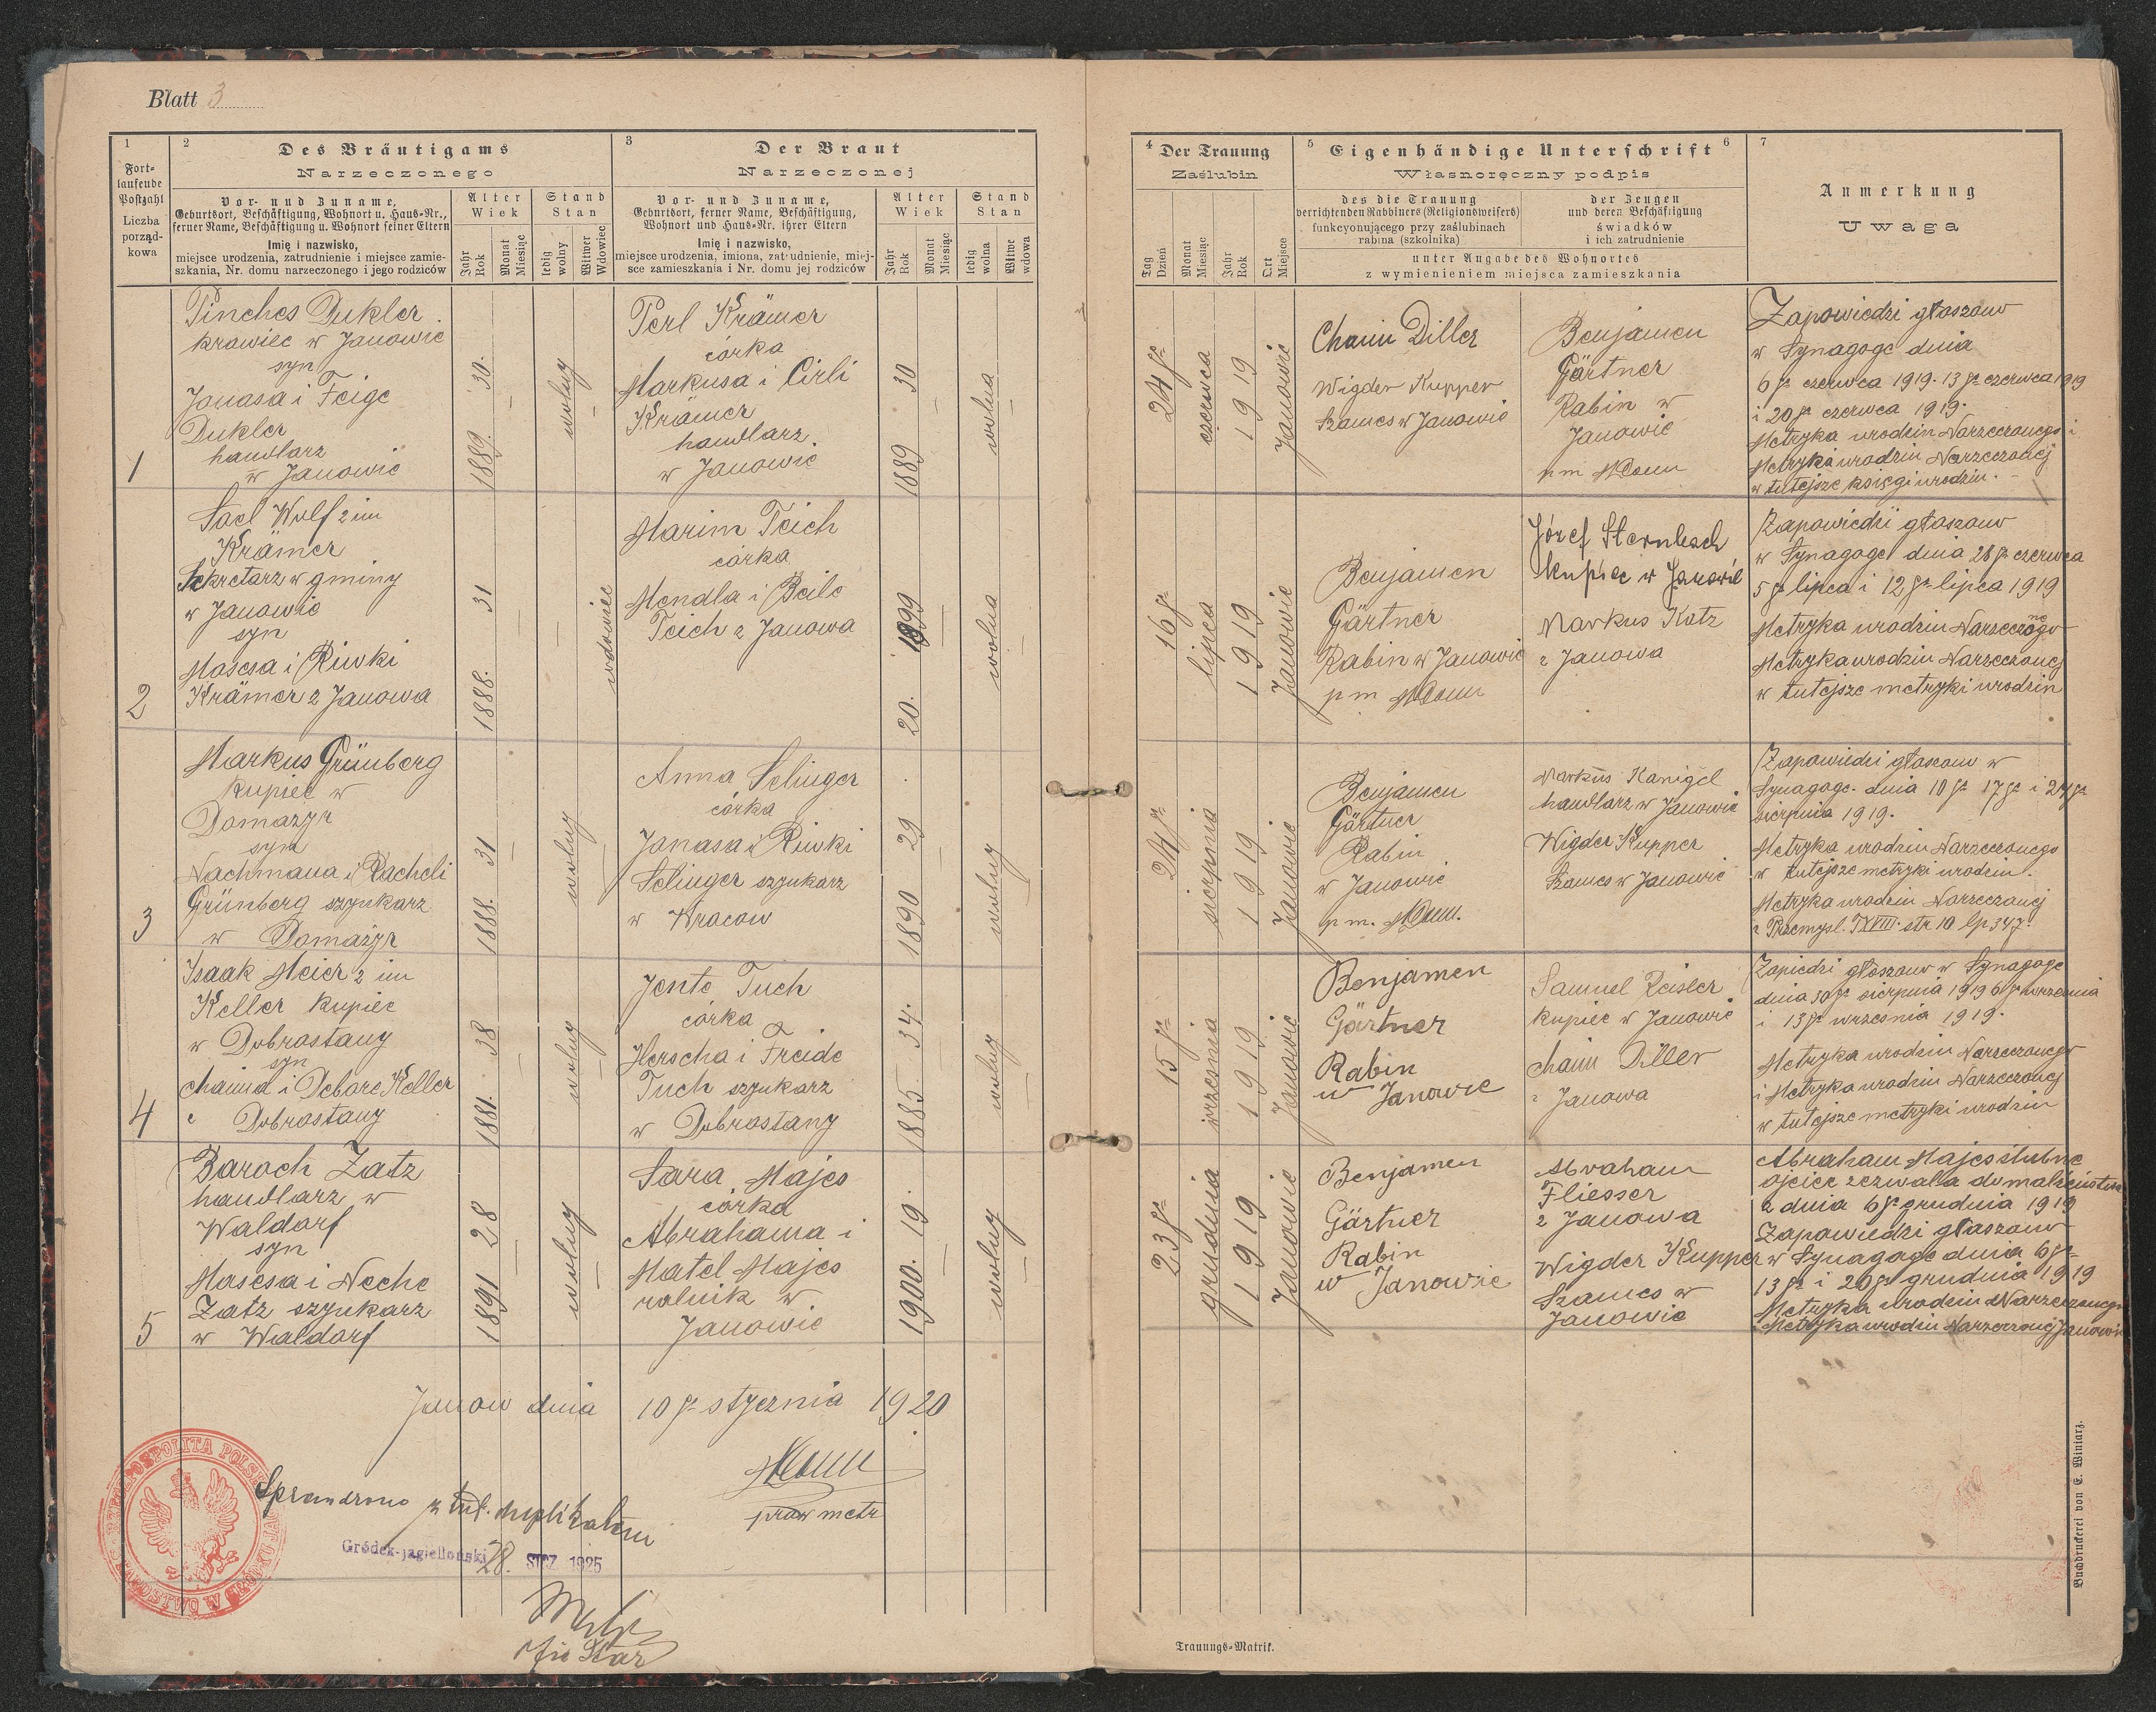 Blatt 3
1
Fort-
laufende
Postzahl
Liczba
porząd-
kowa
2
Des Bräutigams
Narzeczonego
Vor- und Zuname,
Geburtsort, Beschäftigung, Wohnort u. Haus-Nr.,
ferner Name, Beschäftigung u. Wohnort seiner Eltern
Imię i nazwisko,
miejsce urodzenia, zatrudnienie i miejsce zamie-
szkania, Nr. domu narzeczonego i jego rodziców
Alter
Wiek
Jahr
Rok
Monat
Miesiąc
Stand
Stan
ledig
wolny
Witwer
Wdowiec
3
Der Braut
Narzeczonej
Vor- und Zuname,
Geburtsort, ferner Name, Beschäftigung,
Wohnort und Haus-Nr. ihrer Eltern
Imię i nazwisko,
miejsce urodzenia, imiona, zatrudnienie, miej-
sce zamieszkania i Nr. domu jej rodziców
Alter
Wiek
Jahr
Rok
Monat
Miesiąc
Stand
Stan
ledig
wolna
Witwe
wdowa
1
Pinches Dukler
krawiec w Janowie
syn
Janasa i Feige
Dukler
handlarz
w Janowie
1889. 30.
wolny
Perl Krämer
córka
Markusa i Cirli
Krämer
handlarz.
w Janowie
1889 30
wolna
2
Sael Wolf 2 im
Krämer
Sekretarz w gminy
w Janowie
syn
Mosesa i Riwki
Krämer z Janowa
1888. 31
wdowiec
Marim Teich
córka
Mendla i Beile
Teich z Janowa
20. 1899
wolna
3
Markus Grünberg
kupiec w
Domazyr
syn
Nachmana i Racheli
Grünberg szynkarz
w Domażyr
1888. 31
wolny
Anna Selinger
córka
Janasa i Riwki
Selinger szynkarz
w Kracow
1890 29
wolny
4
Isaak Meier 2 im
Keller kupiec
w Dobrostany
syn
Chaima i Debore Keller
z Dobrostany
1881. 38
wolny
Jente Tuch
córka
Herscha i Freide
Tuch szynkarz
w Dobrostany
1885 34.
wolny
5
Baroch Zatz
handlarz w
Waldorf
syn
Mosesa i Neche
Zatz szynkarz
w Waldorf
1891 28
wolny
Sara Majes
córka
Abrahama i
Matel Majes
rolnik w
Janowie
1900. 19.
wolny
Janow dnia 10 go stycznia 1920
praw metr
Sprawdzono z tut. duplikatem
Gródek-jagielloński 28. STCZ 1925
RZECZPOSPOLITA POLSKA
STAROSTWO W GRÓDKU JAG
4
Der Trauung
Zaślubin
Tag
Dzień
Monat
Miesiąc
Jahr
Rok
Ort
Miejsce
5
Eigenhändige Unterschrift
6
Własnoręczny podpis
des die Trauung
verrichtenden Rabbiners (Religionsweisers)
funkcyonującego przy zaślubinach
rabina (szkolnika)
der Zeugen
und deren Beschäftigung
świadków
i ich zatrudnienie
unter Angabe des Wohnortes
z wymienieniem miejsca zamieszkania
7
Anmerkung
Uwaga
24 go
czerwca
1919
Janowie
Chaim Diller
Wigder Kupper
Szames w Janowie
Benjamen
Gärtner
Rabin w
Janowie
Zapowiedzi głoszono
w Synagoge dnia
6 go czerwca 1919. 13 go czerwca 1919
i 20 go czerwca 1919.
Metryka urodzin Narzeczonego i
Metryka urodzin Narzeczonej
w tutejsze księgi urodzin.
16 go
lipca
1919
Janowie
Benjamen
Gärtner
Rabin w Janowie
Józef Sternbach
kupiec w Janowie
Markus Katz
z Janowa
Zapowiedzi głoszono
w Synagoge dnia 28 go czerwca
5 go lipca i 12 go lipca 1919
Metryka urodzin Narzeczonego
Metryka urodzin Narzeczonej
w tutejsze metryki urodzin
24 go
sierpnia
1919
Janowie
Benjamen
Gärtner
Rabin
w Janowie
Markus Kanigel
handlarz w Janowie
Wigder Kupper
Szames w Janowie
Zapowiedzi głoszono w
Synagoge dnia 10 go 17 go i 24 go
sierpnia 1919.
Metryka urodzin Narzeczonego
w tutejsze metryki urodzin.
Metryka urodzin Narzeczonej
z Przemysl. TXVIII. str 10 lp 347.
15 go
wrzesnia
1919
Janowie
Benjamen
Gärtner
Rabin
w Janowie
Samuel Reisler
kupiec w Janowie
Chaim Diller
z Janowa
Zapiedzi głoszono w Synagoge
dnia 30 go sierpnia 1919 6 go wrzesnia
i 13 go wrzesnia 1919.
Metryka urodzin Narzeczonego
i Metryka urodzin Narzeczonej
w tutejsze metryki urodzin
23 go
grudnia
1919
Janowie
Benjamen
Gärtner
Rabin
w Janowie
Abraham
Fliesser
z Janowa
Wigder Kupper
Szames w
Janowie
Abraham Majes ślubne
ojciec zezwalla do malżeństwa
z dnia 6 go grudnia 1919
Zapowiedzi głoszono
w Synagoge dnia 6 go
13 go i 20 go grudnia 1919
Metryka urodzin Narzeczonego
Metryka urodzin Narzeczonej Janowie
Trauungs-Matrik.
Buchdruckerei von E. Winiarz.